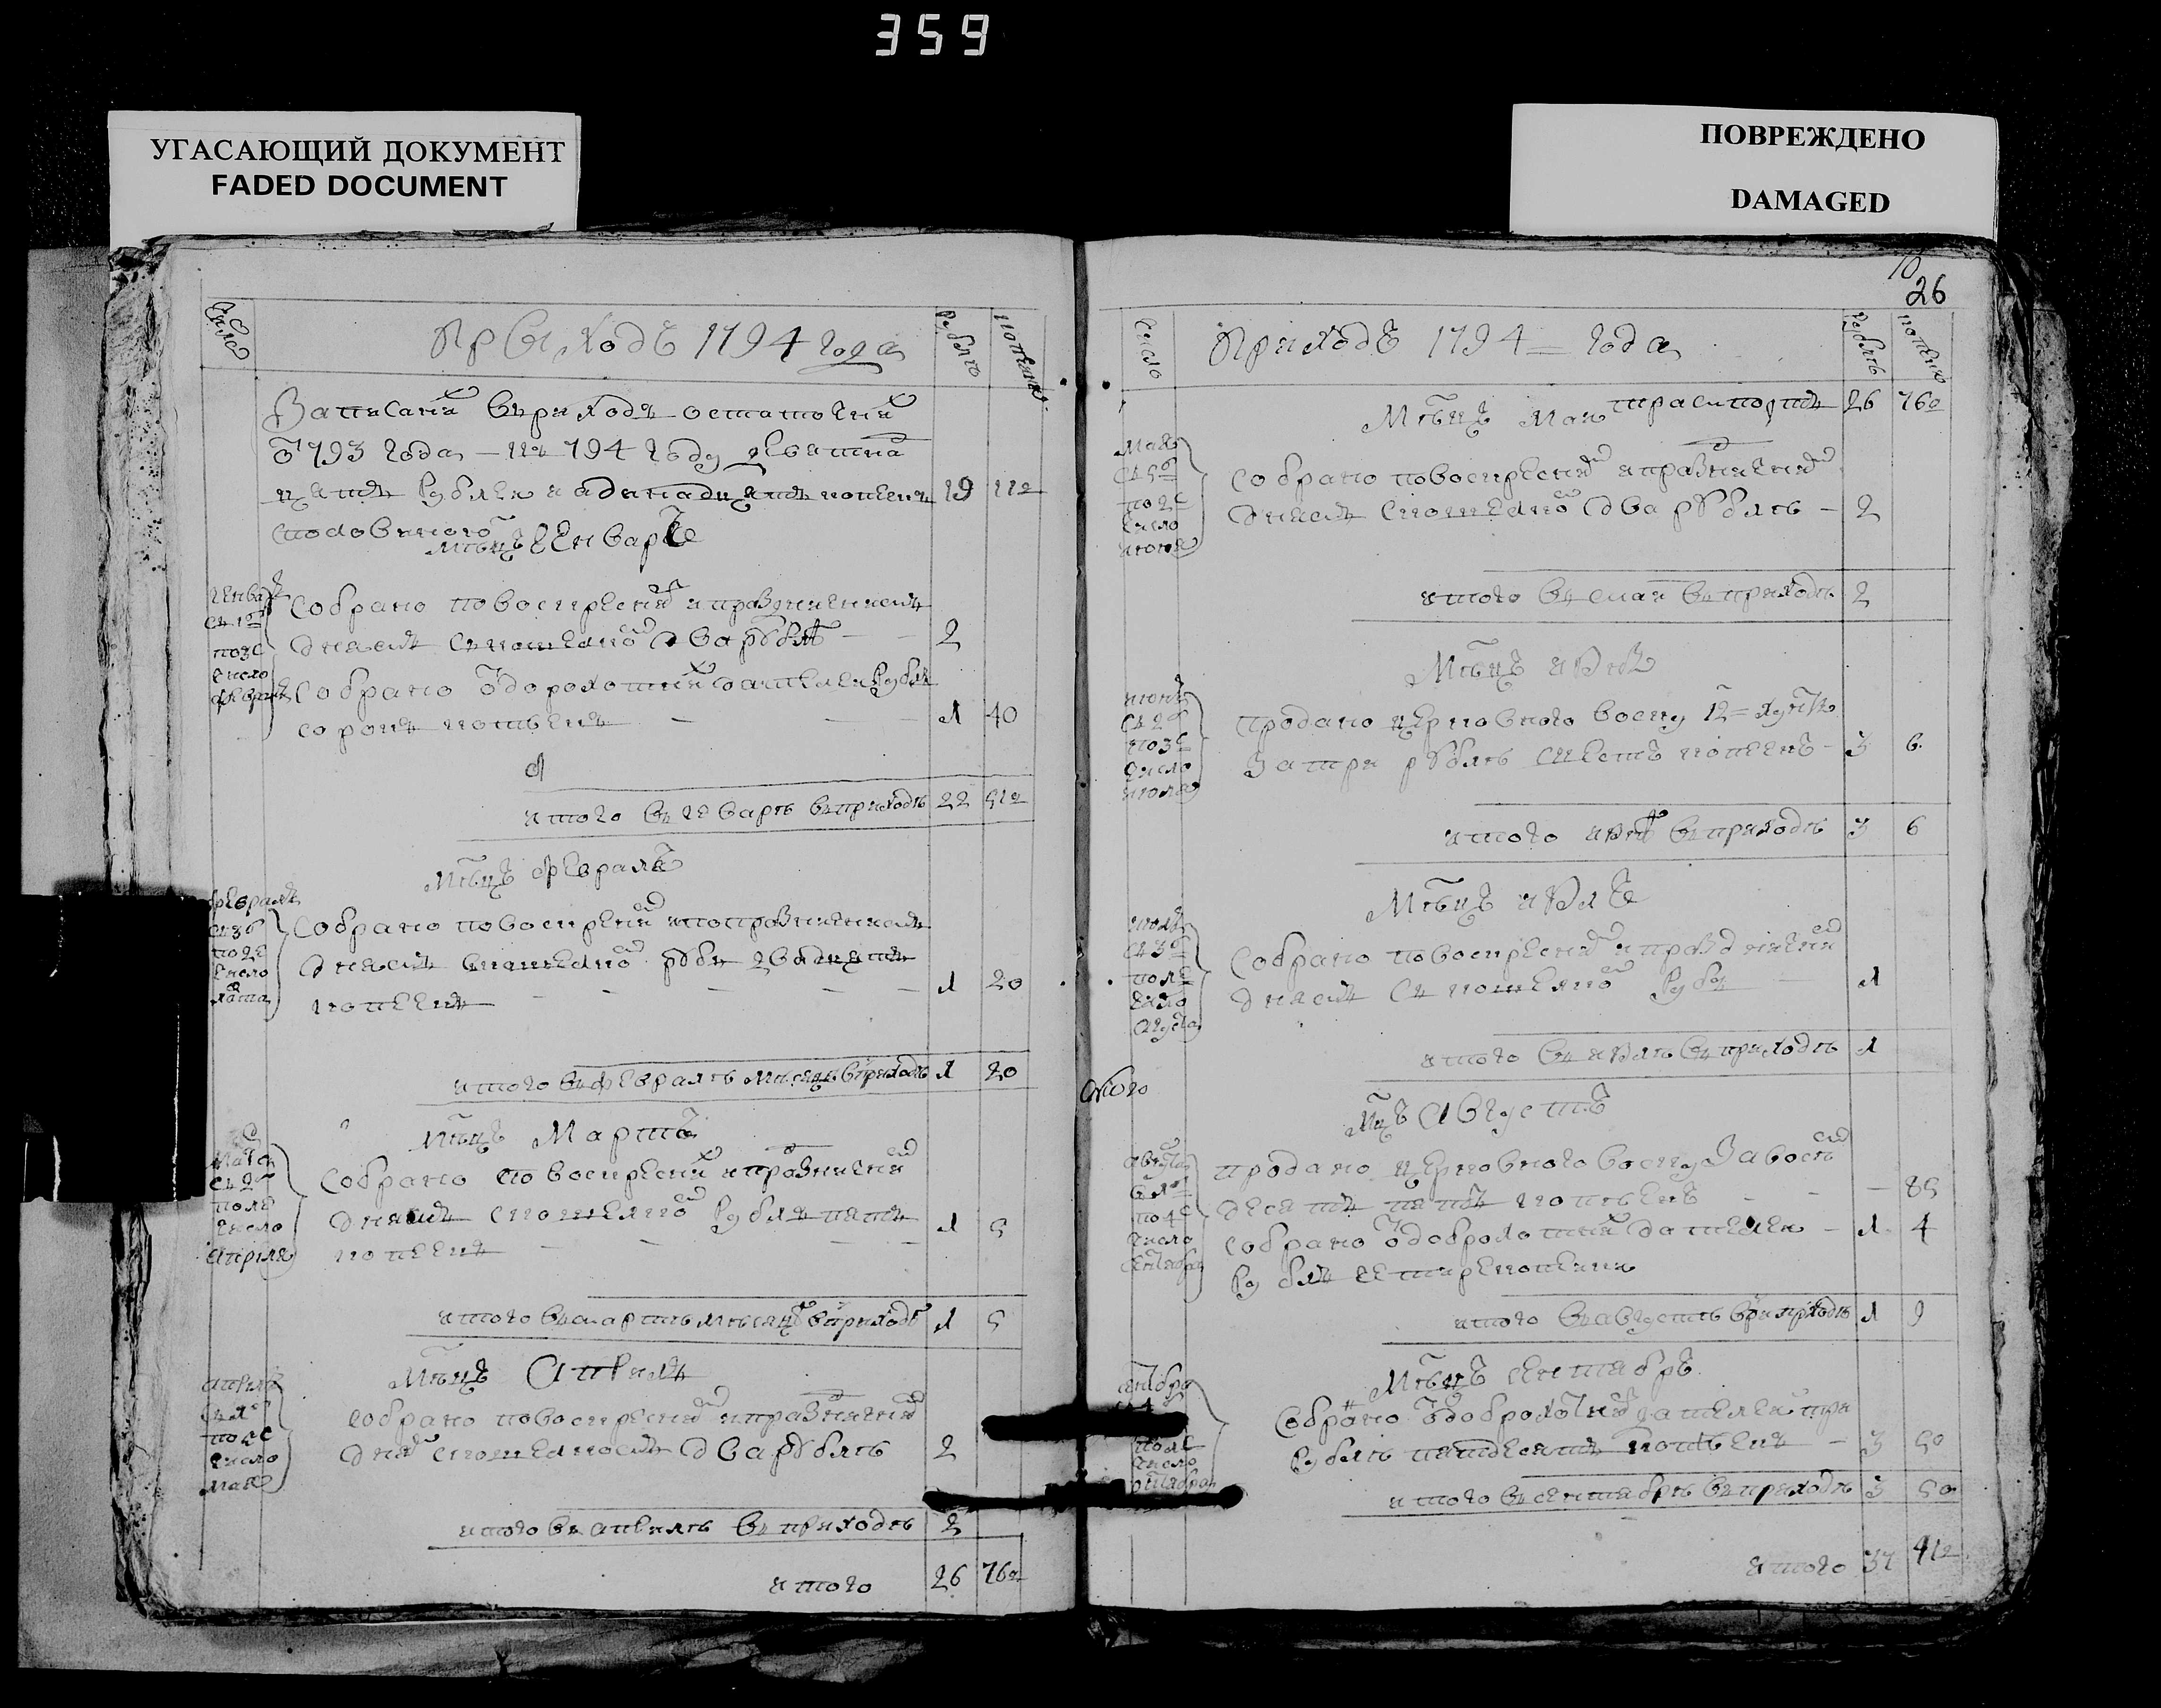 359
УГАСАЮЩИЙ ДОКУМЕНТ
FADED DOCUMENT
ПОВРЕЖДЕНО
DAMAGED
10
26
Число
Приходъ 1794 года
Рубли
копейки
Записана въ приходъ остаточныхъ
от 793 года къ 794 году девятна
цать рублей и адинадцать копеекъ 19 11½
с половиною
мѣсяцъ генварь
генваря
съ 1го
по 3е
число
февраля
Собрано по воскреснымъ и празничнымъ
днямъ съ кошелкомъ два рубли 2
Собрано от дорохотныхъ дателей рубль
сорокъ копѣекъ 1 40
итого въ геварѣ въ приходѣ 22 51½
мѣсяцъ февраль
февраля
съ 3го
по 2е
число
марта
Собрано по воскреснымъ и по празничнымъ
днямъ с кошелкомъ рубль двадцать
копеекъ 1 20
итого въ февралѣ мѣсяцѣ въ приходѣ 1 20
мѣсяцъ Мартъ
марта
съ 2го
по 1е
число
априля
Собрано по воскреснымъ и празничнымъ
днямъ с кошелкомъ рубль пять
копеекъ 1 5
итого въ мартѣ мѣсяцѣ въ приходѣ 1 5
мѣсяцъ Априль
априля
съ 1го
по 2е
число
мая
собрано по воскреснымъ и празничнымъ
днямъ с кошелкомъ два рубли 2
итого въ априлѣ въ приходѣ 2
итого 26 76½
Число
Приходъ 1794 года
Рубли
копейки
транспортъ 26 76½
Мѣсяцъ маи
мая
съ 5го
по 2е
число
июня
Собрано по воскреснымъ и празничнымъ
днямъ с кошелкомъ два рубли 2
итого въ маи въ приходѣ 2
Мѣсяцъ июнь
июня
съ 2го
по 3е
число
июля
продано церковного воску 12 фунтовъ
за три рубли шесть копеекъ 3 6
итого июнь въ приходѣ 3 6
Мѣсяцъ июль
июля
съ 3го
по 1е
число
августа
Собрано по воскреснымъ и празничнымъ
днямъ съ кошелкомъ рубль 1
итого въ июлѣ въ приходѣ 1
мцъ Августъ
августа
въ 1го
по 4е
число
сентября
продано церковного воску за восемь
десятъ пять копѣекъ 85
собрано от доброхотныхъ дателей 1 4
рубль четыре копейки
итого въ августѣ в приходѣ 1 9
Мѣсяцъ сентябрь
сентября
по 1е
число
октября
Собрано от доброхотныхъ дателей три
рубли пятдесятъ копѣекъ 3 50
итого въ сентябрѣ въ приходѣ 3 50
итого 37 41½